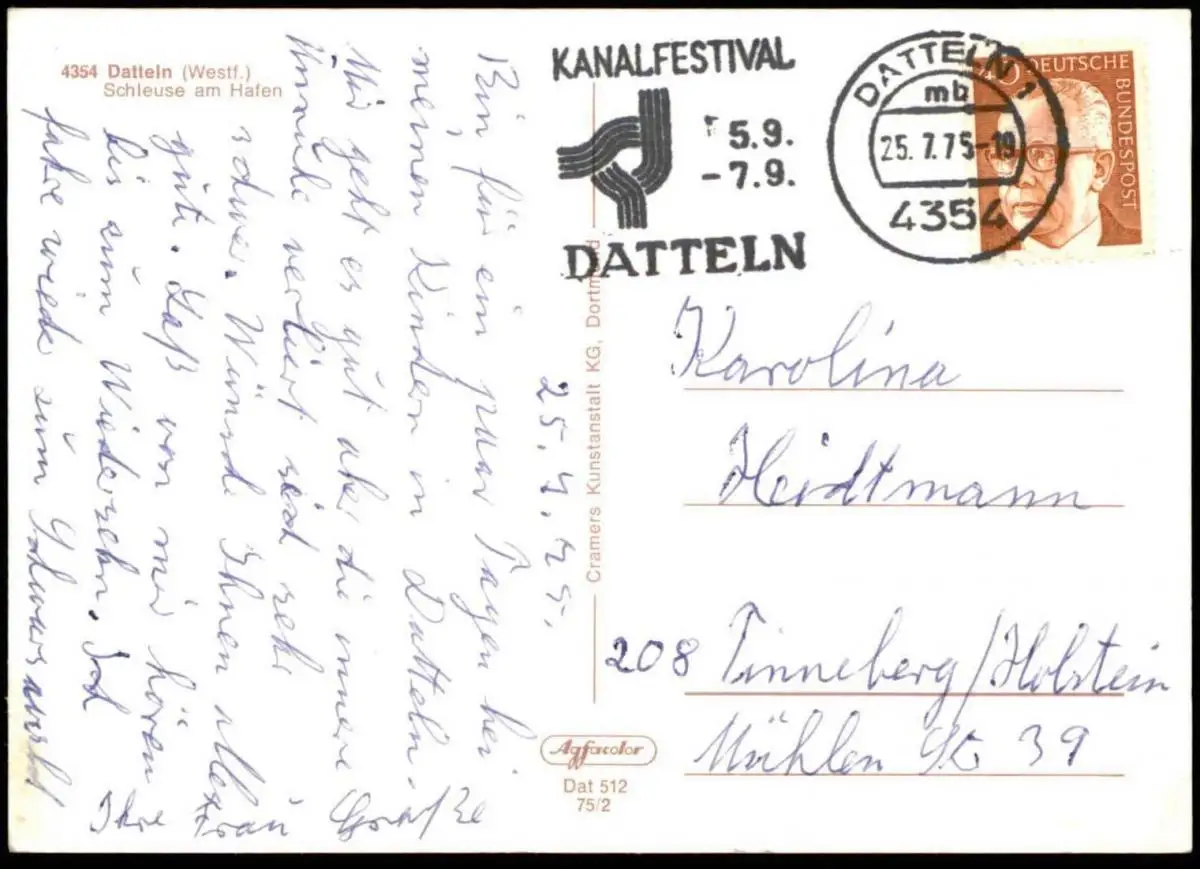 4354 Datteln (Westf.)
Schleuse am Hafen
KANALFESTIVAL
5.9.
-7.9.
DATTELN
DATTELN 1
mb
25.7.75-19
4354
40 DEUTSCHE
BUNDESPOST
25.7.75.
Bin für ein paar Tagen bei
meinen Kindern in Datteln.
Mir geht es gut aber die innere
Unruhe verliert sich sehr
schwer. Wünsche Ihnen alles
gute. Laß von mir hören
bis zum Wiedersehn. Ich
fahre wieder zum
Ihre Frau Gräfke
Cramers Kunstanstalt KG, Dortmund
Agfacolor
Dat 512
75/2
Karolina
Heidtmann
208 Pinneberg/Holstein
Mühlen Str 39